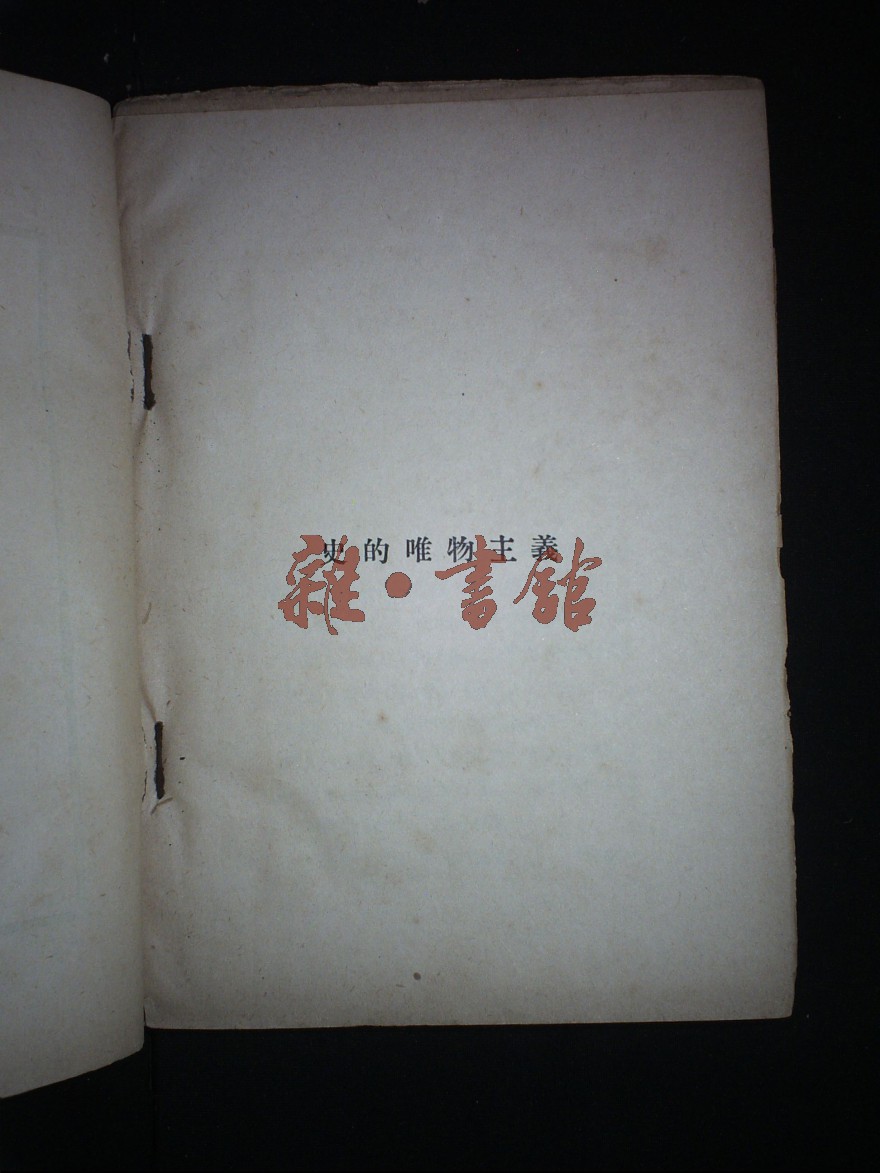 史的唯物主義
雜·書館